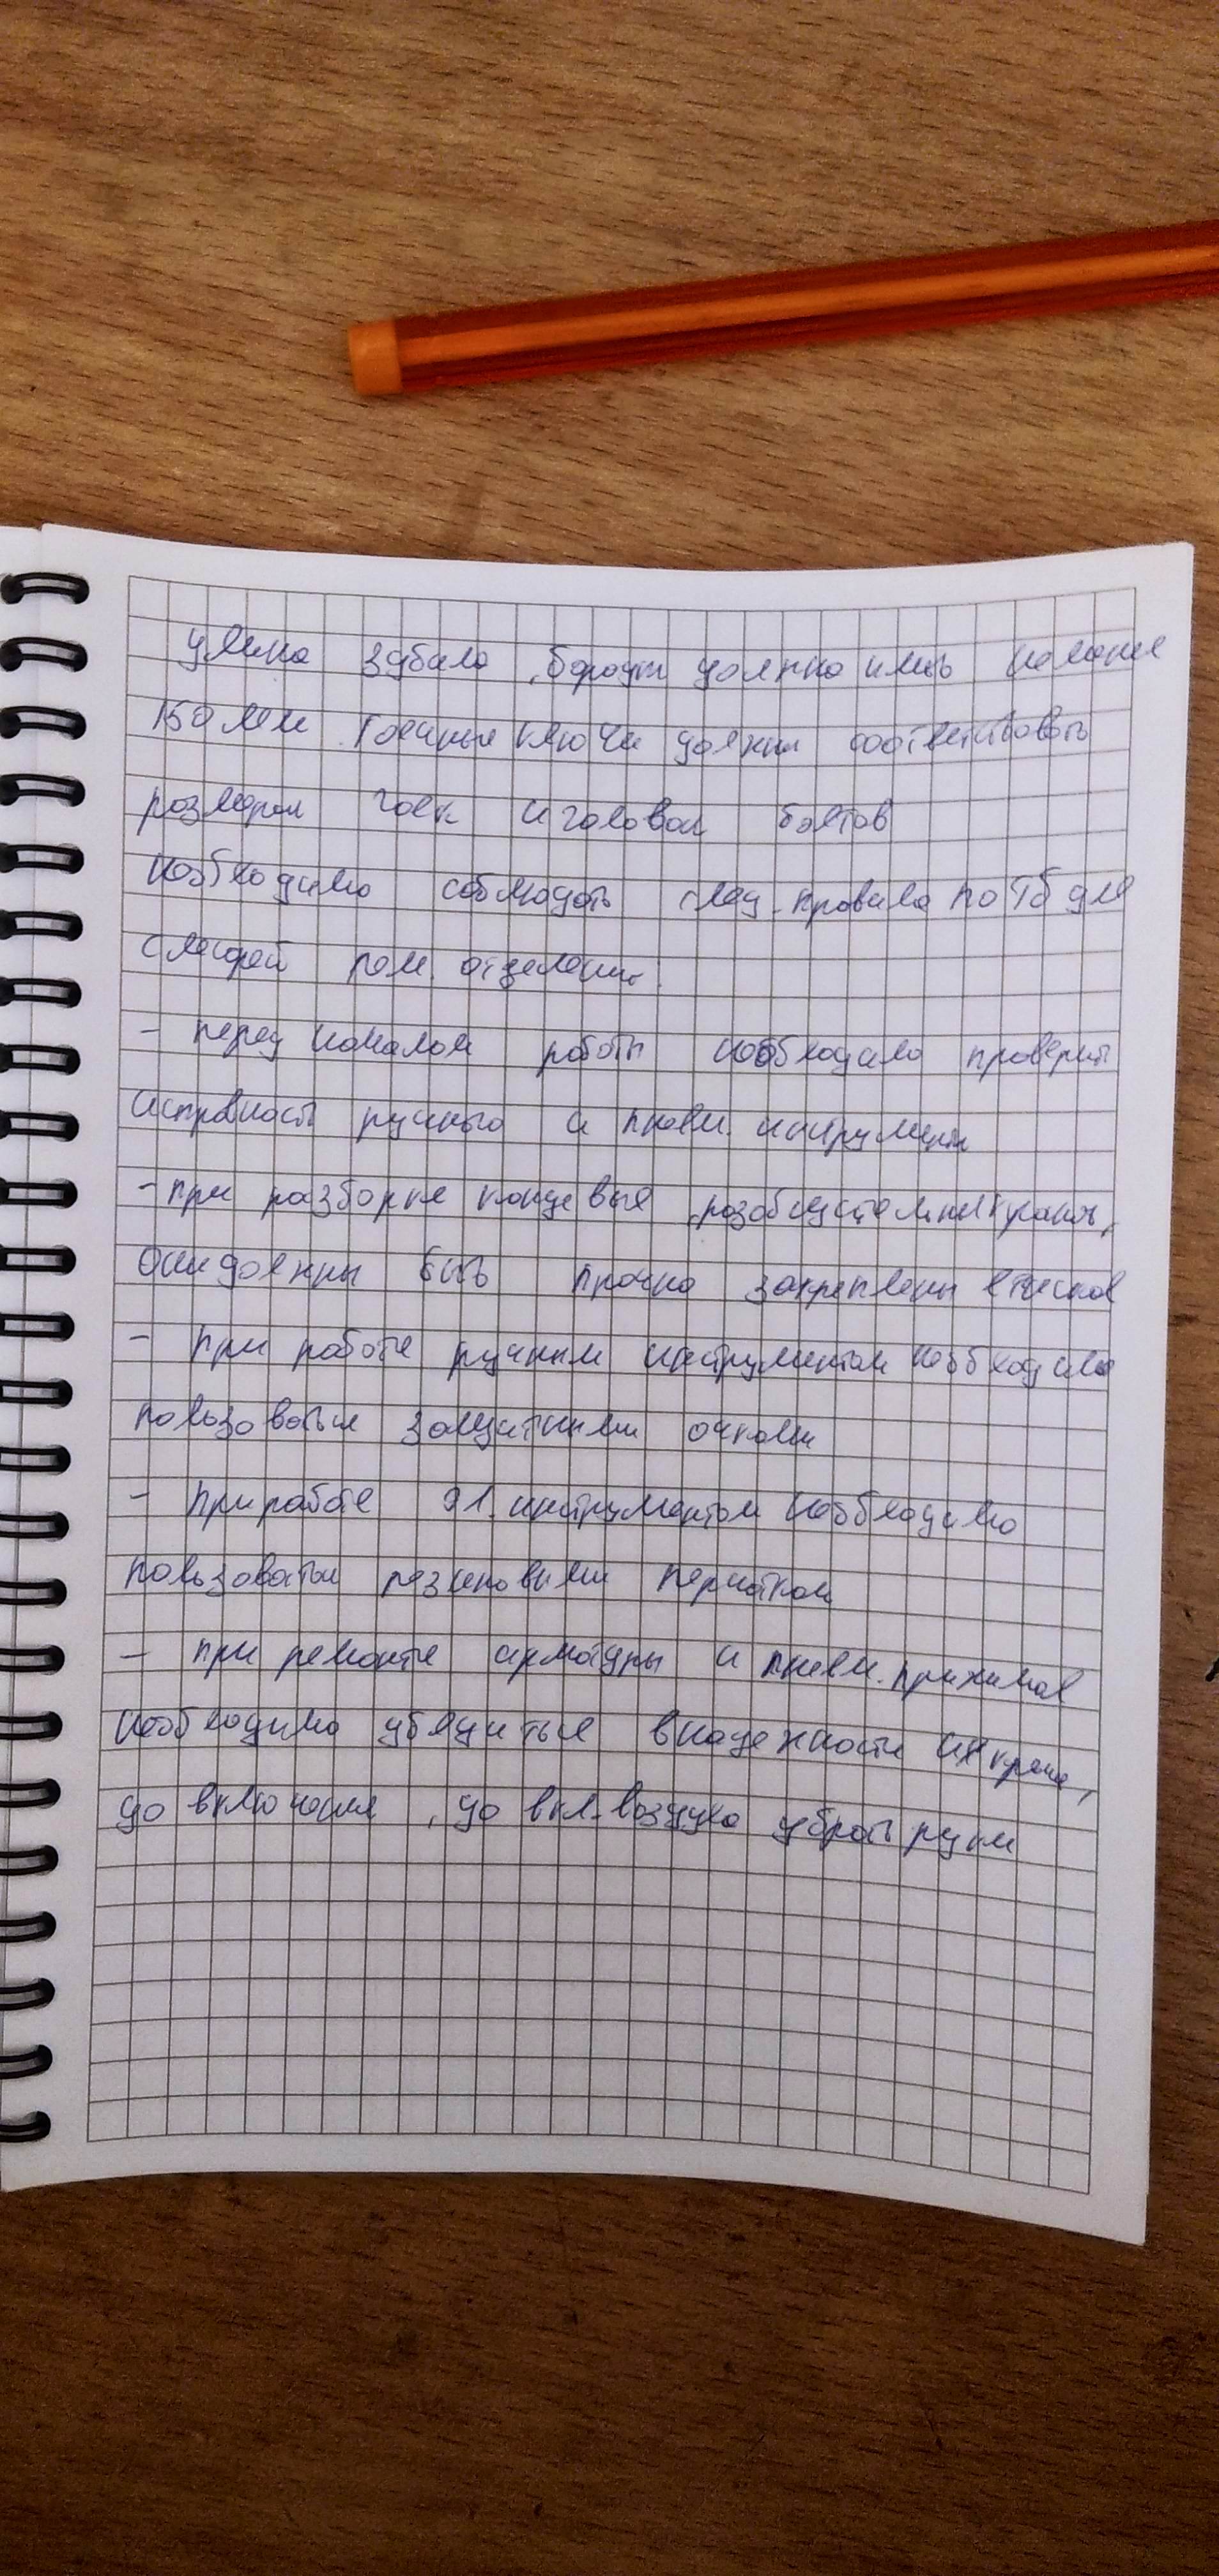 Длина зубила, бородки должна иметь не менее
150 мм. Гаечные ключи должны соответствовать
размерам гаек и головам болтов
Необходимо соблюдать след. правила по ТБ для
слесарей рем. отделения:
- перед началом работы необходимо проверить
исправность ручного и пневм. инструмента
- при разборке концевые, разобщительные кранов,
они должны быть прочно закреплены в тисках
- при работе ручным инструментом необходимо
пользоваться защитными очками
- при работе эл. инструментом необходимо
пользоваться резиновыми перчатками
- при ремонте арматуры и пневм. прижимов
необходимо убедиться в надежности их
до включения, до вкл. воздуха убрать руки